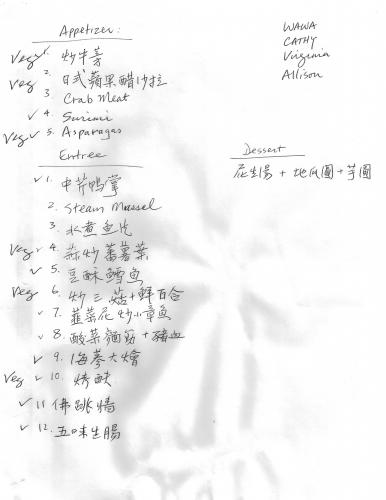 Appetizer:
Veg ✓ 1. 炒牛蒡
Veg 2. 日式蘋果醋沙拉
3. Crab Meat
✓ 4. Surimi
Veg ✓ 5. Asparagas
Entree
✓ 1. 中芹鴨掌
2. Steam Mussel
3. 水煮魚片
Veg ✓ 4. 蒜炒蕃薯葉
✓ 5. 豆酥鱈魚
Veg 6. 炒三菇+鮮百合
✓ 7. 韮菜花炒小章魚
✓ 8. 酸菜麵筋+豬血
✓ 9. 海蔘大燴
Veg ✓ 10. 烤麩
✓ 11 佛跳牆
✓ 12. 五味生腸
WAWA
CATHY
Virginia
Allison
Dessert
花生湯 + 地瓜圓 + 芋圓